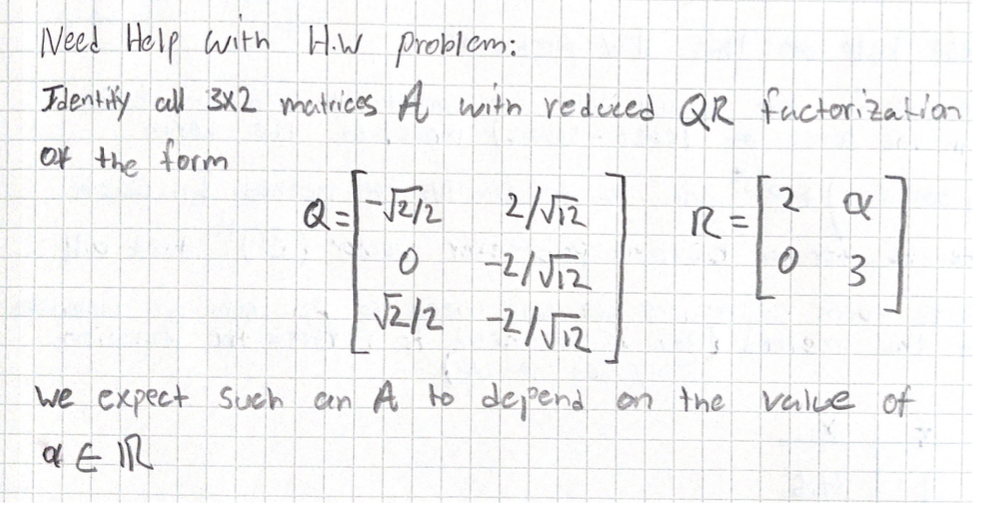 Need Help with H.W problem:
Identify all 3x2 matrices A with reduced QR factorization
of the form
Q = [ -√2/2 2/√12 ; 0 -2/√12 ; √2/2 -2/√12 ] R = [ 2 α ; 0 3 ]
we expect such an A to depend on the value of
α ∈ ℝ